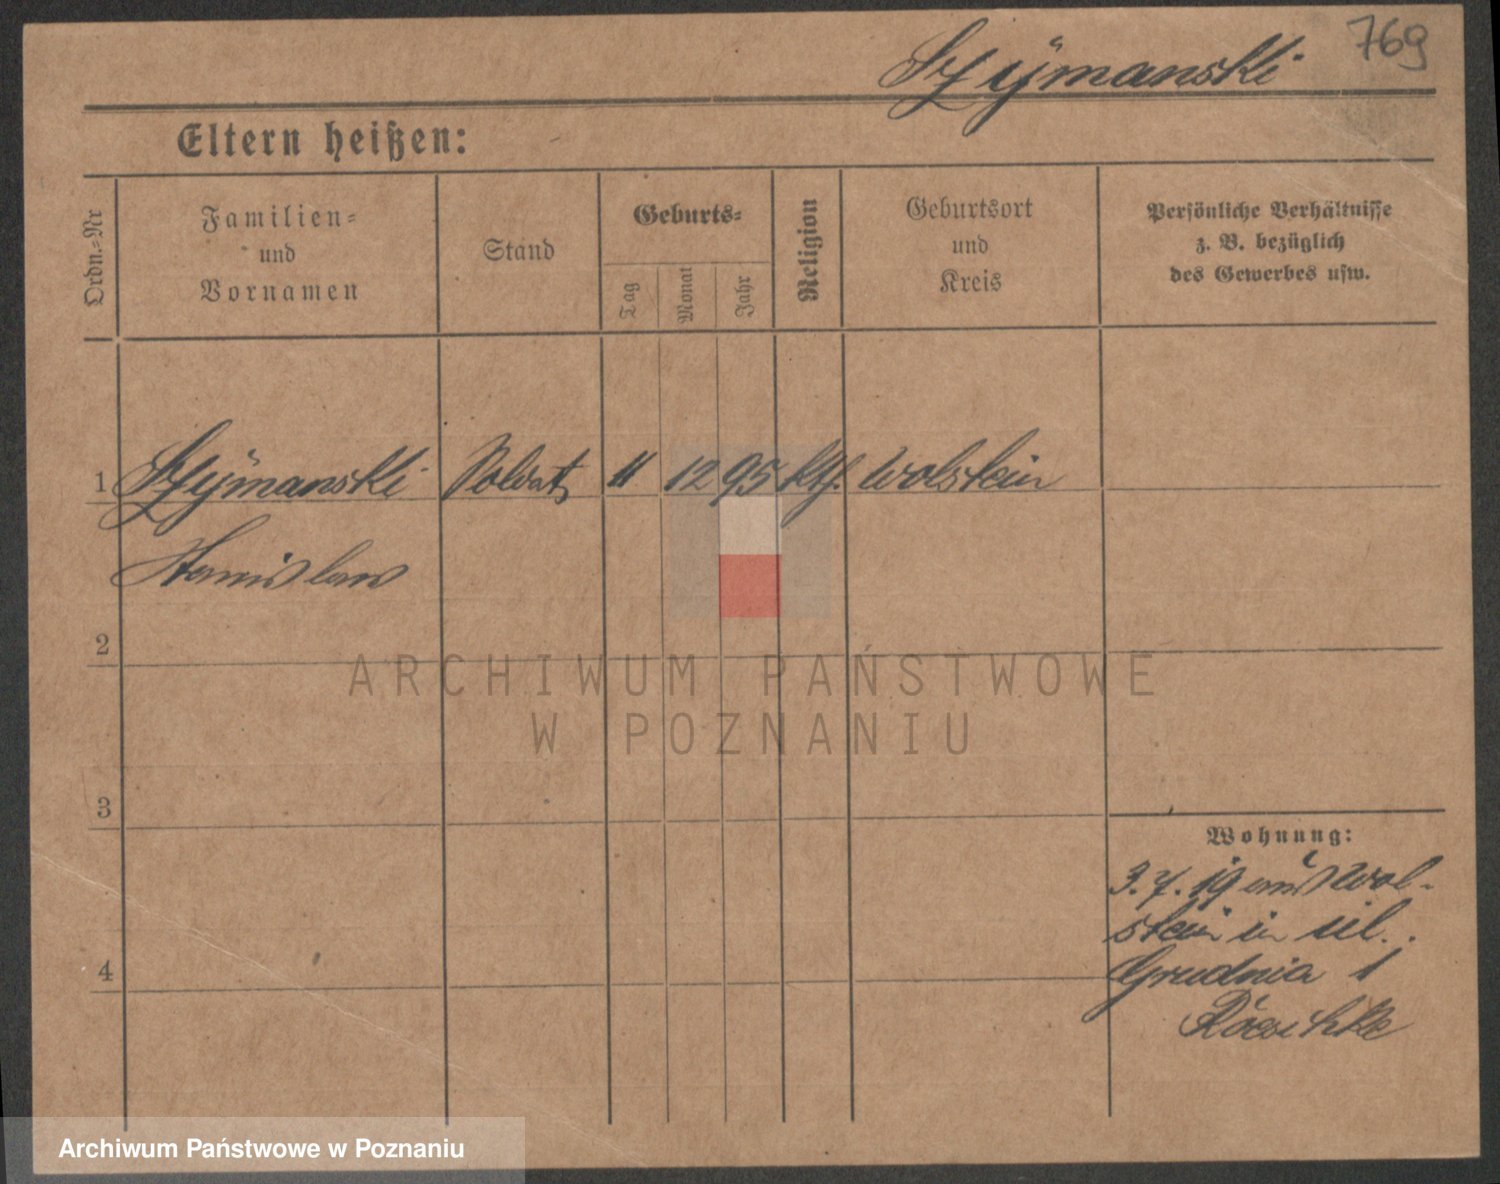 769
Szÿmanski
Eltern heißen:
Ordn.=Nr
Familien=
und
Vornamen
Stand
Geburts=
Tag
Monat
Jahr
Religion
Geburtsort
und
Kreis
Persönliche Verhältnisse
z. B. bezüglich
des Gewerbes usw.
1 Szÿmanski Soldat 11 12 95 kth. Wolstein
Stanislaw
2
3
4
Wohnung:
3. 7. 19 aus Wol-
stein in ul.
Grudnia 1
ARCHIWUM PAŃSTWOWE
W POZNANIU
Archiwum Państwowe w Poznaniu